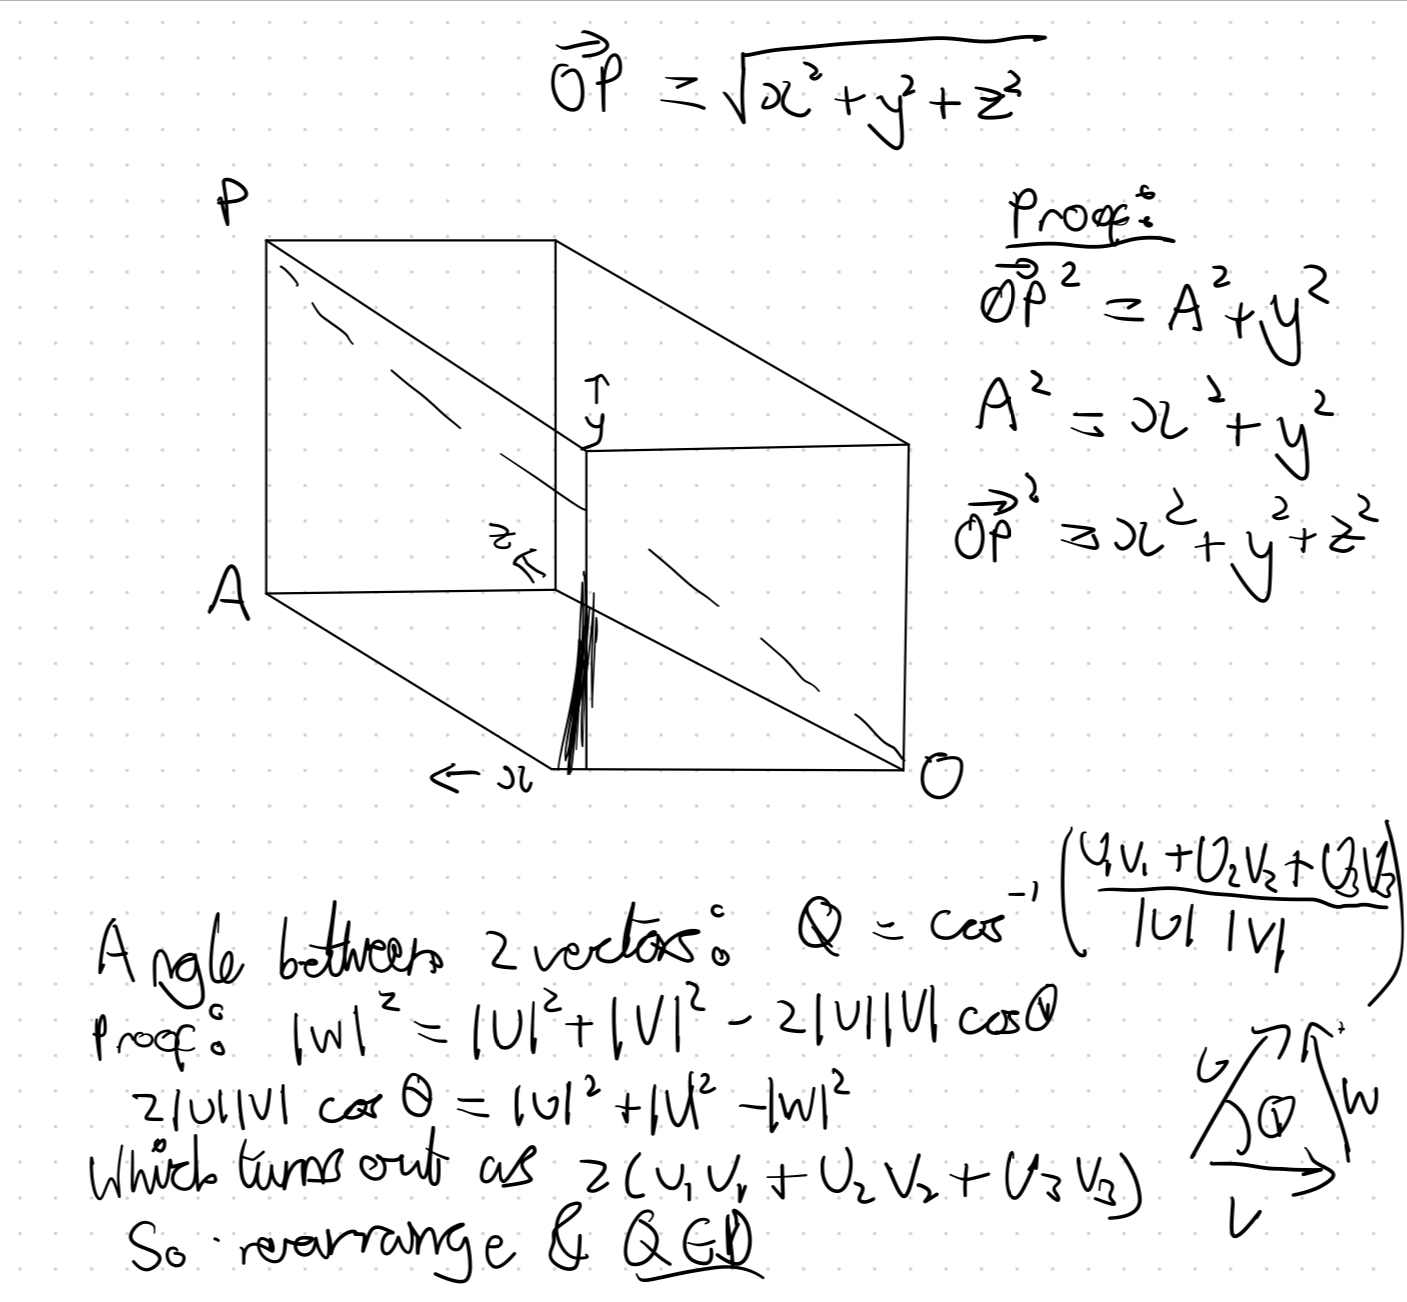 OP⃗ = √x² + y² + z²
P
Proof:
OP⃗² = A² + y²
A² = x² + y²
OP⃗² = x² + y² + z²
↑
y
z ↖
A
← x
O
Angle between 2 vectors: θ = cos⁻¹ (U₁V₁ + U₂V₂ + U₃V₃ / |U| |V|)
Proof: |W|² = |U|² + |V|² - 2|U||V| cosθ
2|U||V| cos θ = |U|² + |V|² - |W|²
Which turns out as 2(U₁V₁ + U₂V₂ + U₃V₃)
So rearrange & QED
U
θ
W
V